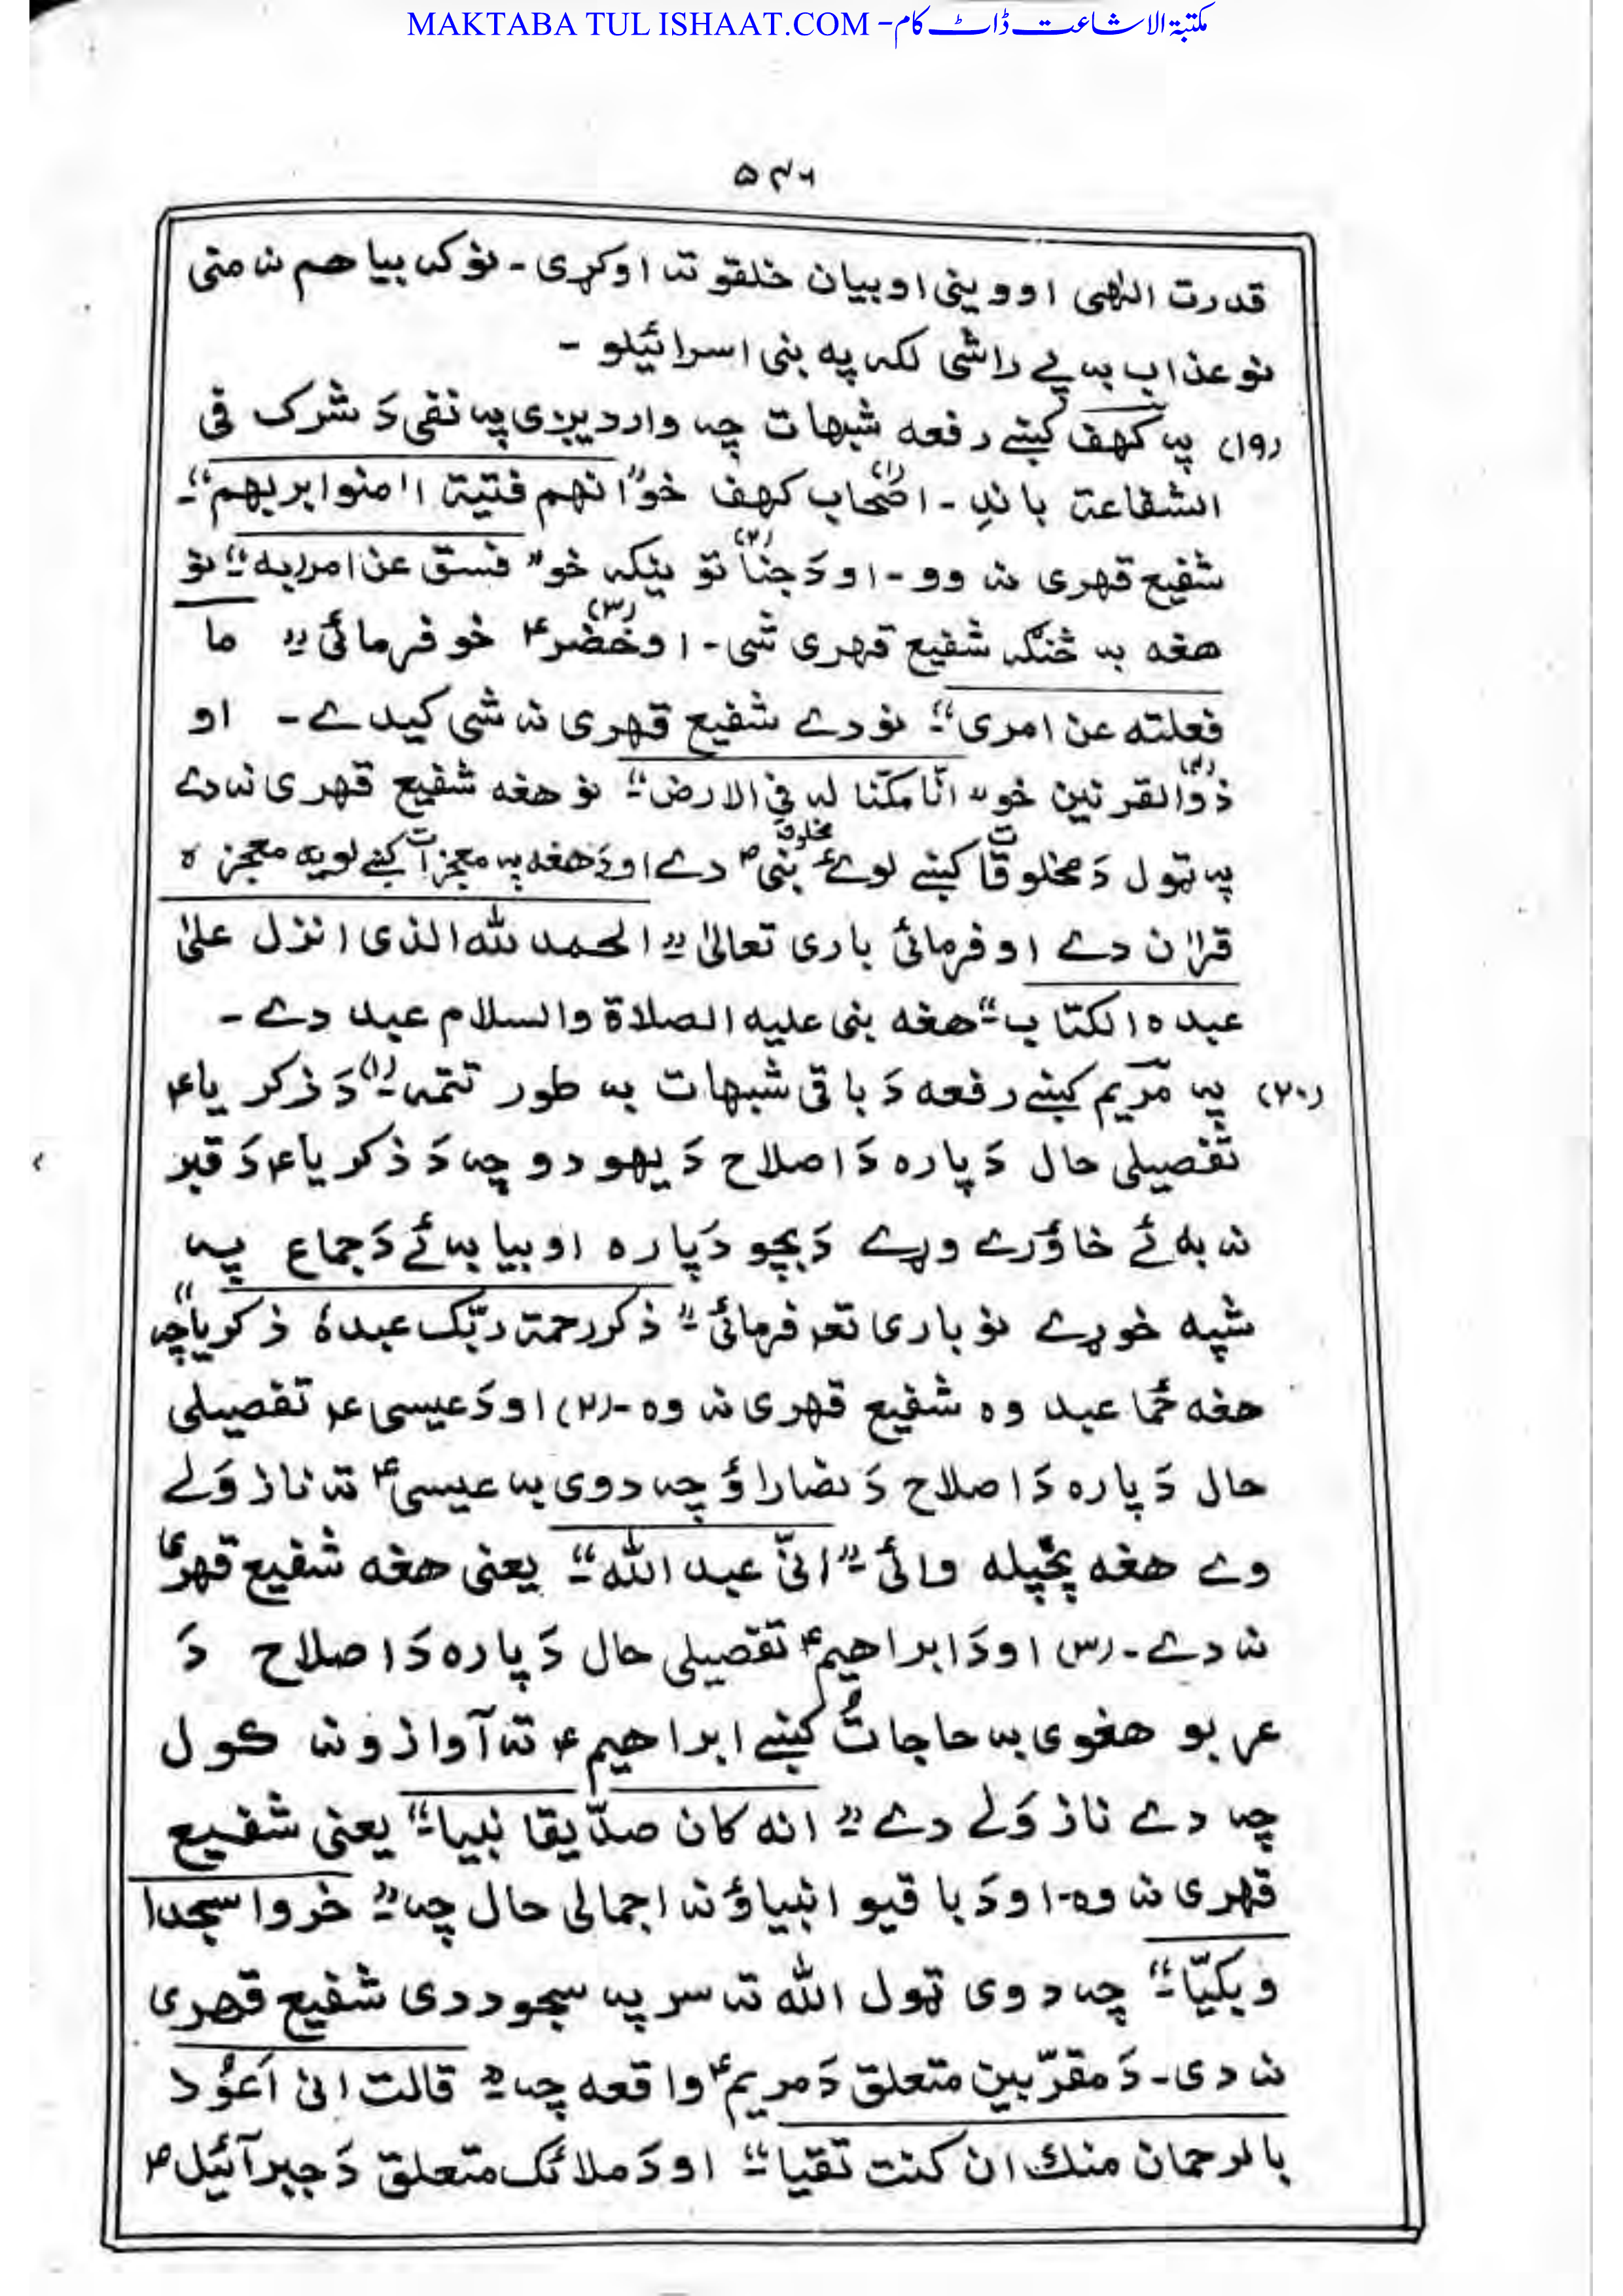 MAKTABA TUL ISHAAT.COM - مکتبۃ الاشاعت ڈاٹ کام
۵۴۶
قدرت الٰهی اووینی او بیان خلقو ته اوکړی - نو که بیا هم نه منی
نو عذاب به پے راشی لکه په بنی اسرائیلو -
(۱۹) په کهف کښے رفعه شبهات چه وارد یږی په نفی دَ شرک فی
الشفاعة باندِ - (۱) اصحاب کهف خو "انهم فتیة اٰمنوا بربهم"-
شفیع قهری نه وو - او دَ جناتو (۲) نیکه خو "فسق عن امر ربه"- نو
هغه به څنګه شفیع قهری شی - او خضر (۳)؏ خو فرمائی " ما
فعلته عن امری"- نو دے شفیع قهری نه شی کیدے - او
ذوالقرنین (۴) خو "انّا مکّنّا له فی الارض"- نو هغه شفیع قهری نه دے
په ټول دَ مخلوقات کښے لوئے مخلوق نبی؏ دے او دَ هغه په معجزات کښے لویه معجزه
قراٰن دے او فرمائی باری تعالیٰ "الحمد لله الذی انزل علیٰ
عبده الکتاب"- هغه نبی علیه الصلاة والسلام عبد دے -
(۲۰) په مریم کښے رفعه دَ باقی شبهات به طور تتمه -(۱) دَ ذکریا؏
تفصیلی حال دَ پاره دَ اصلاح دَ یهودو چه دَ ذکریا؏ دَ قبر
نه به ئے خاؤرے وړے دَ بچو دَ پاره او بیا به ئے دَ جماع په
شپه خوړے نو باری تعٰ فرمائی -"ذکر رحمة ربّک عبدهٗ ذکریا" چه
هغه څما عبد وه شفیع قهری نه وه - (۲) او دَ عیسی؏ تفصیلی
حال دَ پاره دَ اصلاح دَ نصاراؤ چه دوی به عیسی؏ ته نازوَلے
وے هغه پخپله وائی -"انّی عبد الله"- یعنی هغه شفیع قهری
نه دے - (۳) او دَ ابراهیم؏ تفصیلی حال دَ پاره دَ اصلاح دَ
عربو هغوی به حاجات کښے ابراهیم؏ ته آوازونه کول
چه دے نازوَلے دے " انه کان صدّیقا نبیا"- یعنی شفیع
قهری نه وه - او دَ باقیو انبیاؤ نه اجمالی حال چه -" خروا سجدا
وبکیّا"- چه دوی ټول الله ته سر په سجود دی شفیع قهری
نه دی - دَ مقرّبین متعلق دَ مریم؏ واقعه چه -" قالت انی اَعوُذ
بالرحمان منك ان کنت تقیا"- او دَ ملائک متعلق دَ جبرآئیل؏